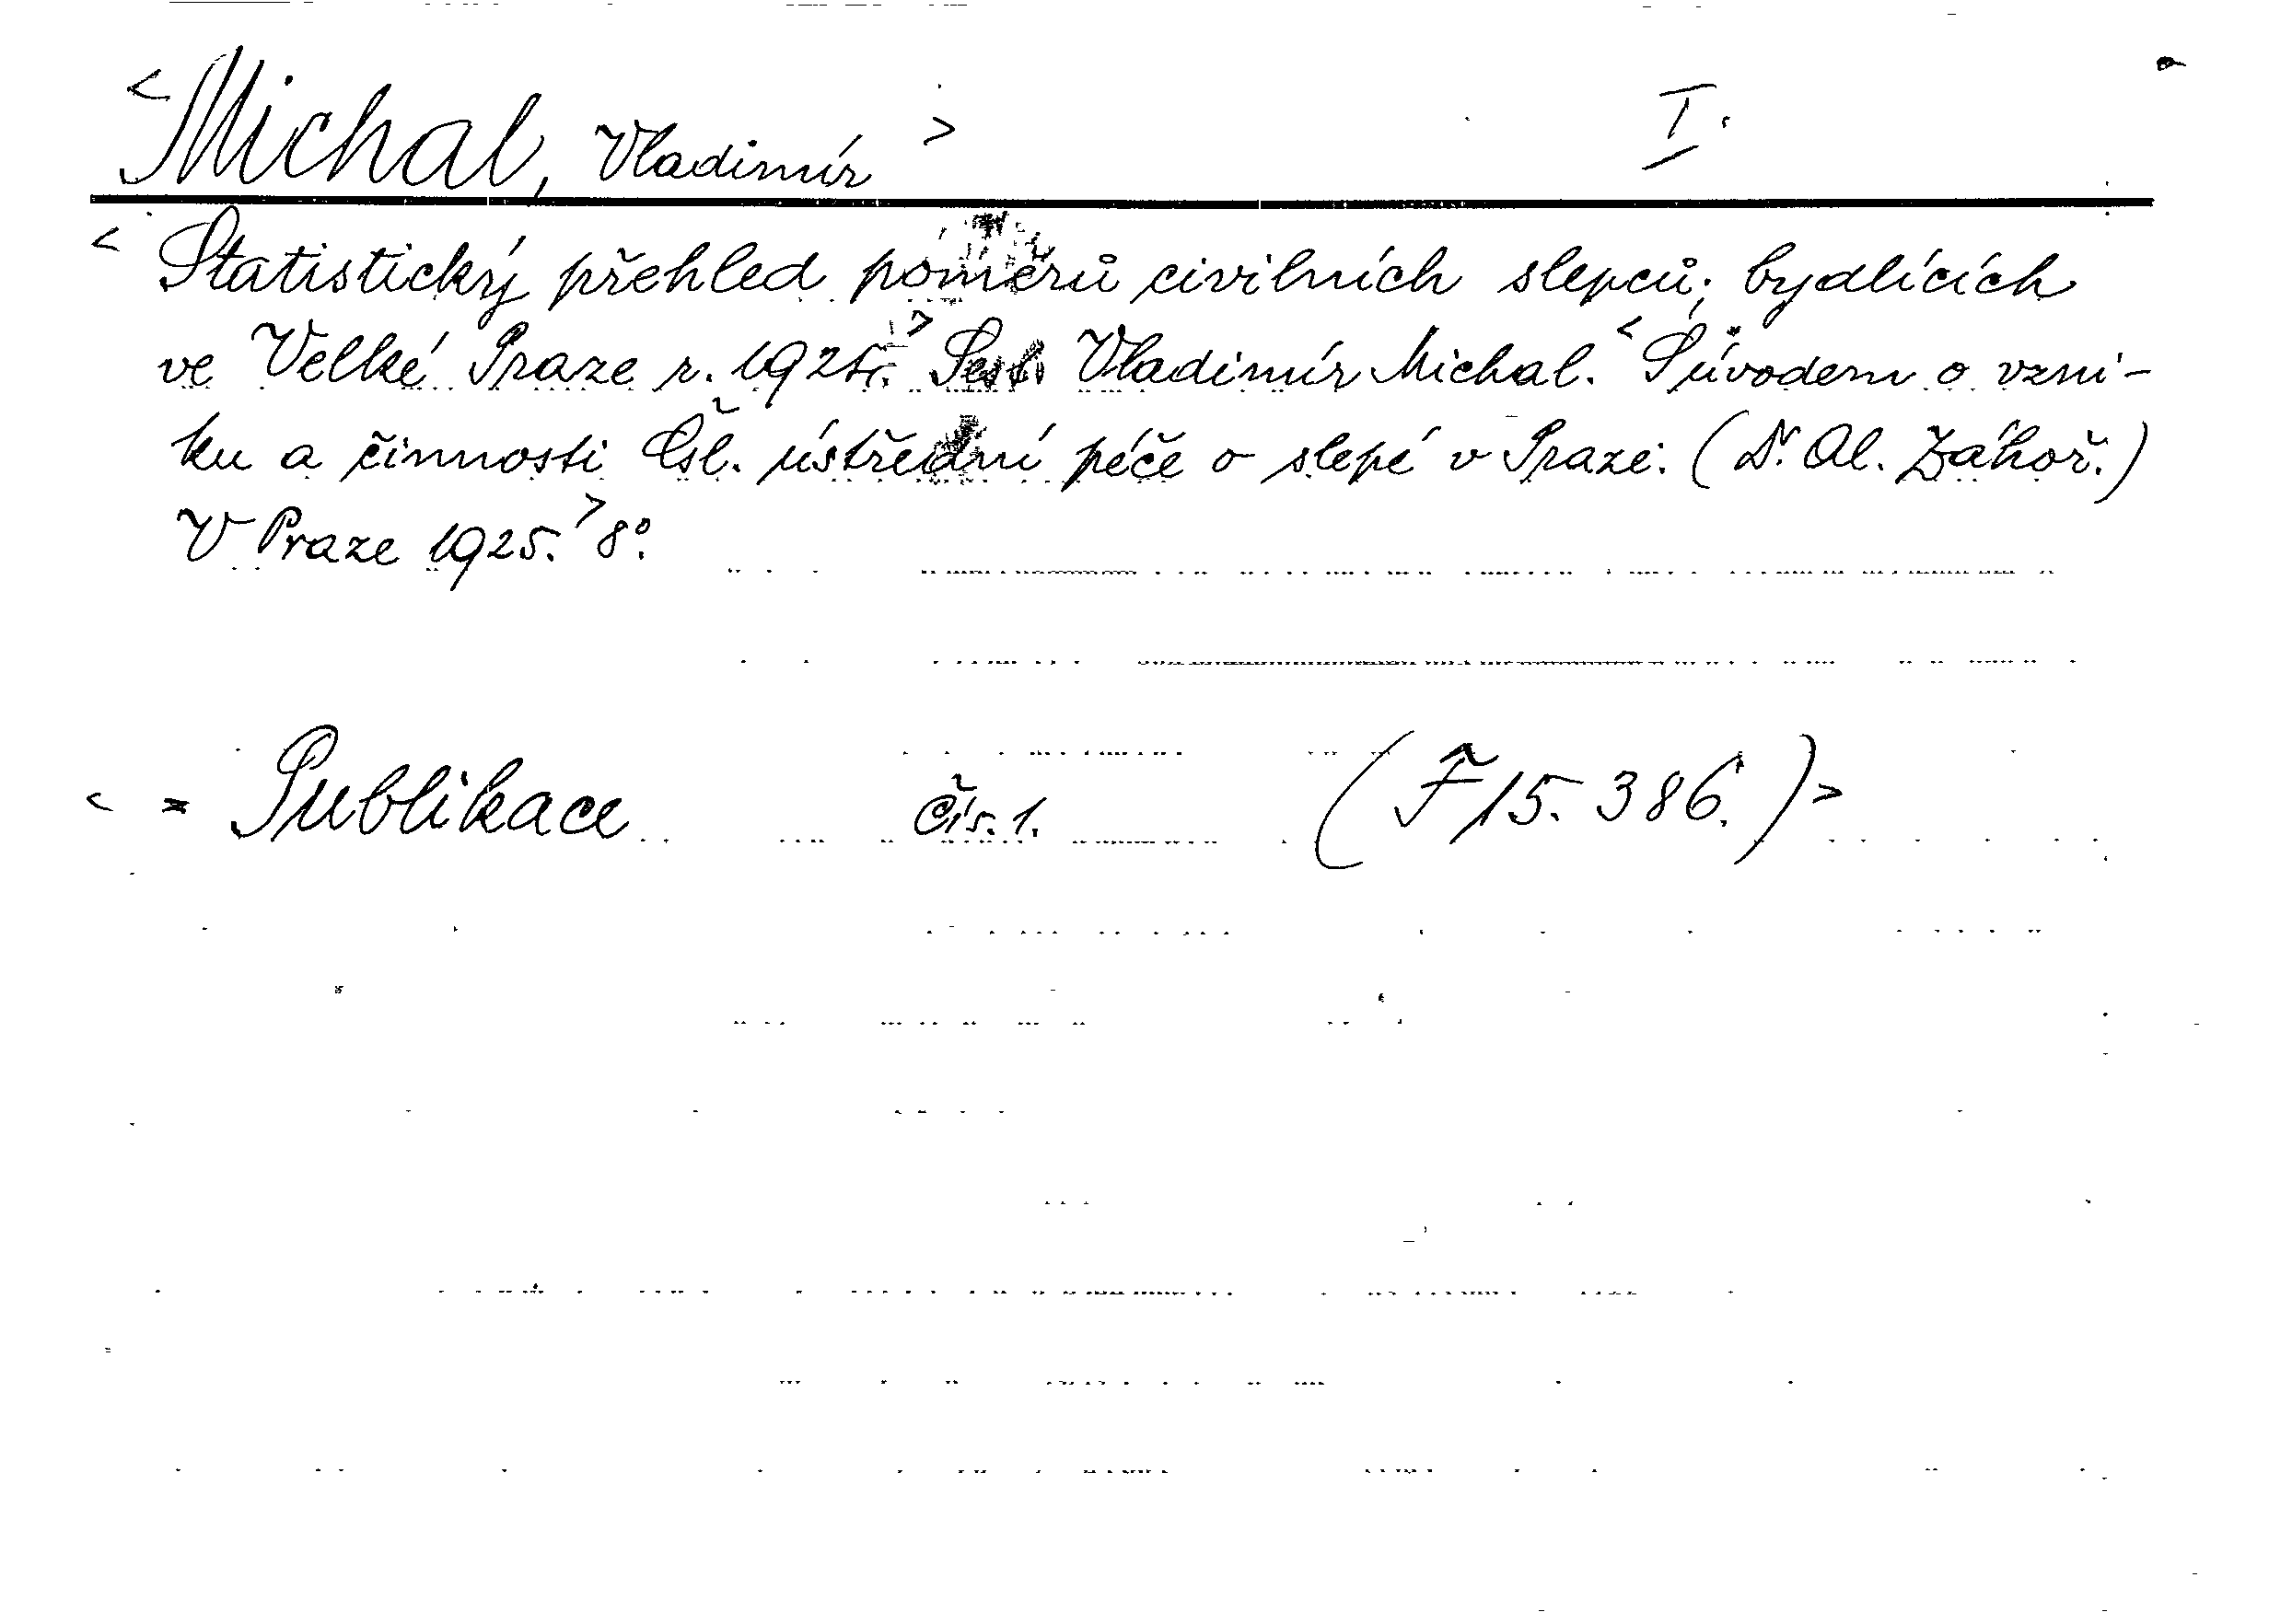 <Michal, Vladimír> I.
<Statistický přehled poměrů civilních slepců, bydlících
ve Velké Praze r. 1925.> Sest. Vladimír Michal. <S úvodem o vzni-
ku a činnosti Čsl. ústřední péče o slepé v Praze. (Dr. Al. Záhoř.)
V Praze 1925.> 8°.
< = Publikace čís. 1. (F 15.386.)>